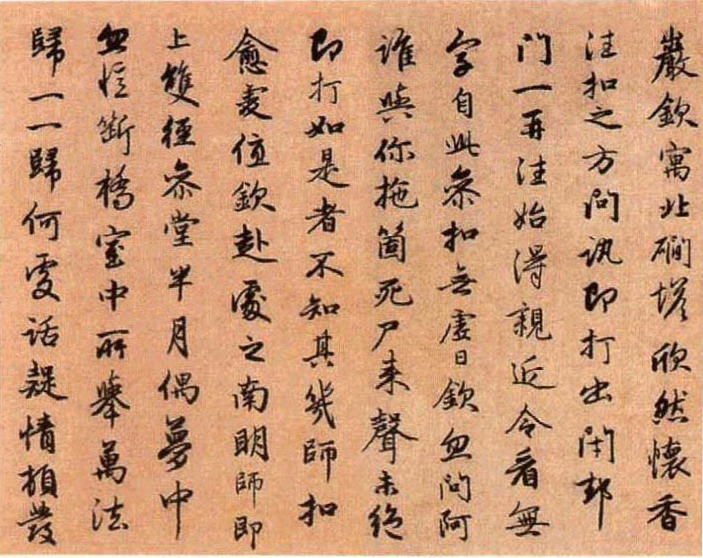 巖欽寓北磵塔欣然懷香
往扣之方問訊即打出閉却
門一再往始得親近令看無
字自此叅扣無虛日欽忽問阿
誰與你拖箇死尸来聲未絕
即打如是者不知其幾師扣
愈虔值欽赴處之南明師即
上雙徑叅堂半月偶夢中
忽憶斷橋室中所舉萬法
歸一一歸何處話疑情頓發